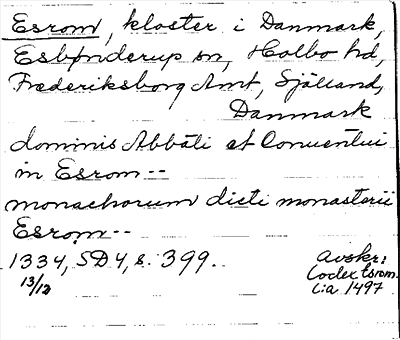 Esrom, kloster i Danmark,
Esbønderup sn, Holbo hd,
Frederiksborg Amt, Själland,
Danmark
dominis Abbati et Conventui
in Esrom --
monachorum dicti monasterii
Esrom --
1334, SD 4, s. 399.
13/12
Avskr:
Codex Esrom.
c:a 1497